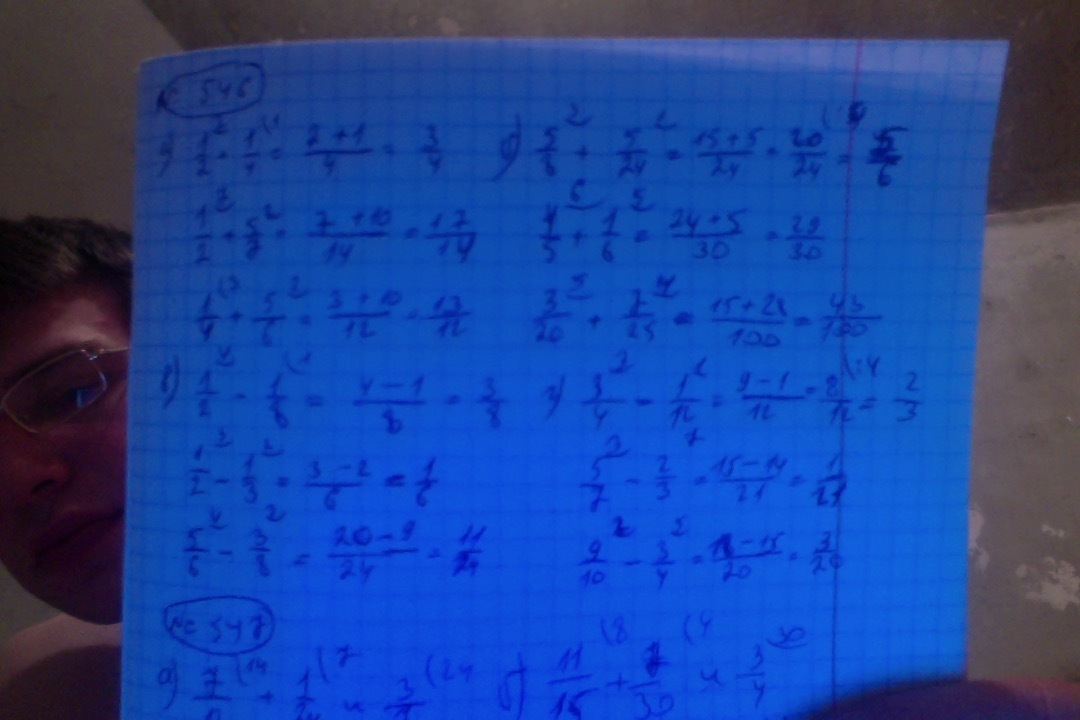 № 546
а) 1/2 + 1/4 = (2+1)/4 = 3/4 б) 5/6 + 5/24 = (15+5)/24 = 20/24 = 5/6
1/2 + 5/7 = (7+10)/14 = 17/14 4/5 + 1/6 = (24+5)/30 = 29/30
1/4 + 5/6 = (3+10)/12 = 13/12 3/20 + 7/25 = (15+28)/100 = 43/100
в) 1/2 - 1/8 = (4-1)/8 = 3/8 г) 3/4 - 1/12 = (9-1)/12 = 8/12 = 2/3
1/2 - 1/3 = (3-2)/6 = 1/6 5/7 - 2/3 = (15-14)/21 = 1/21
5/6 - 3/8 = (20-9)/24 = 11/24 9/10 - 3/4 = (18-15)/20 = 3/20
№ 547
а) б) 11/15 + 7/30 и 3/4